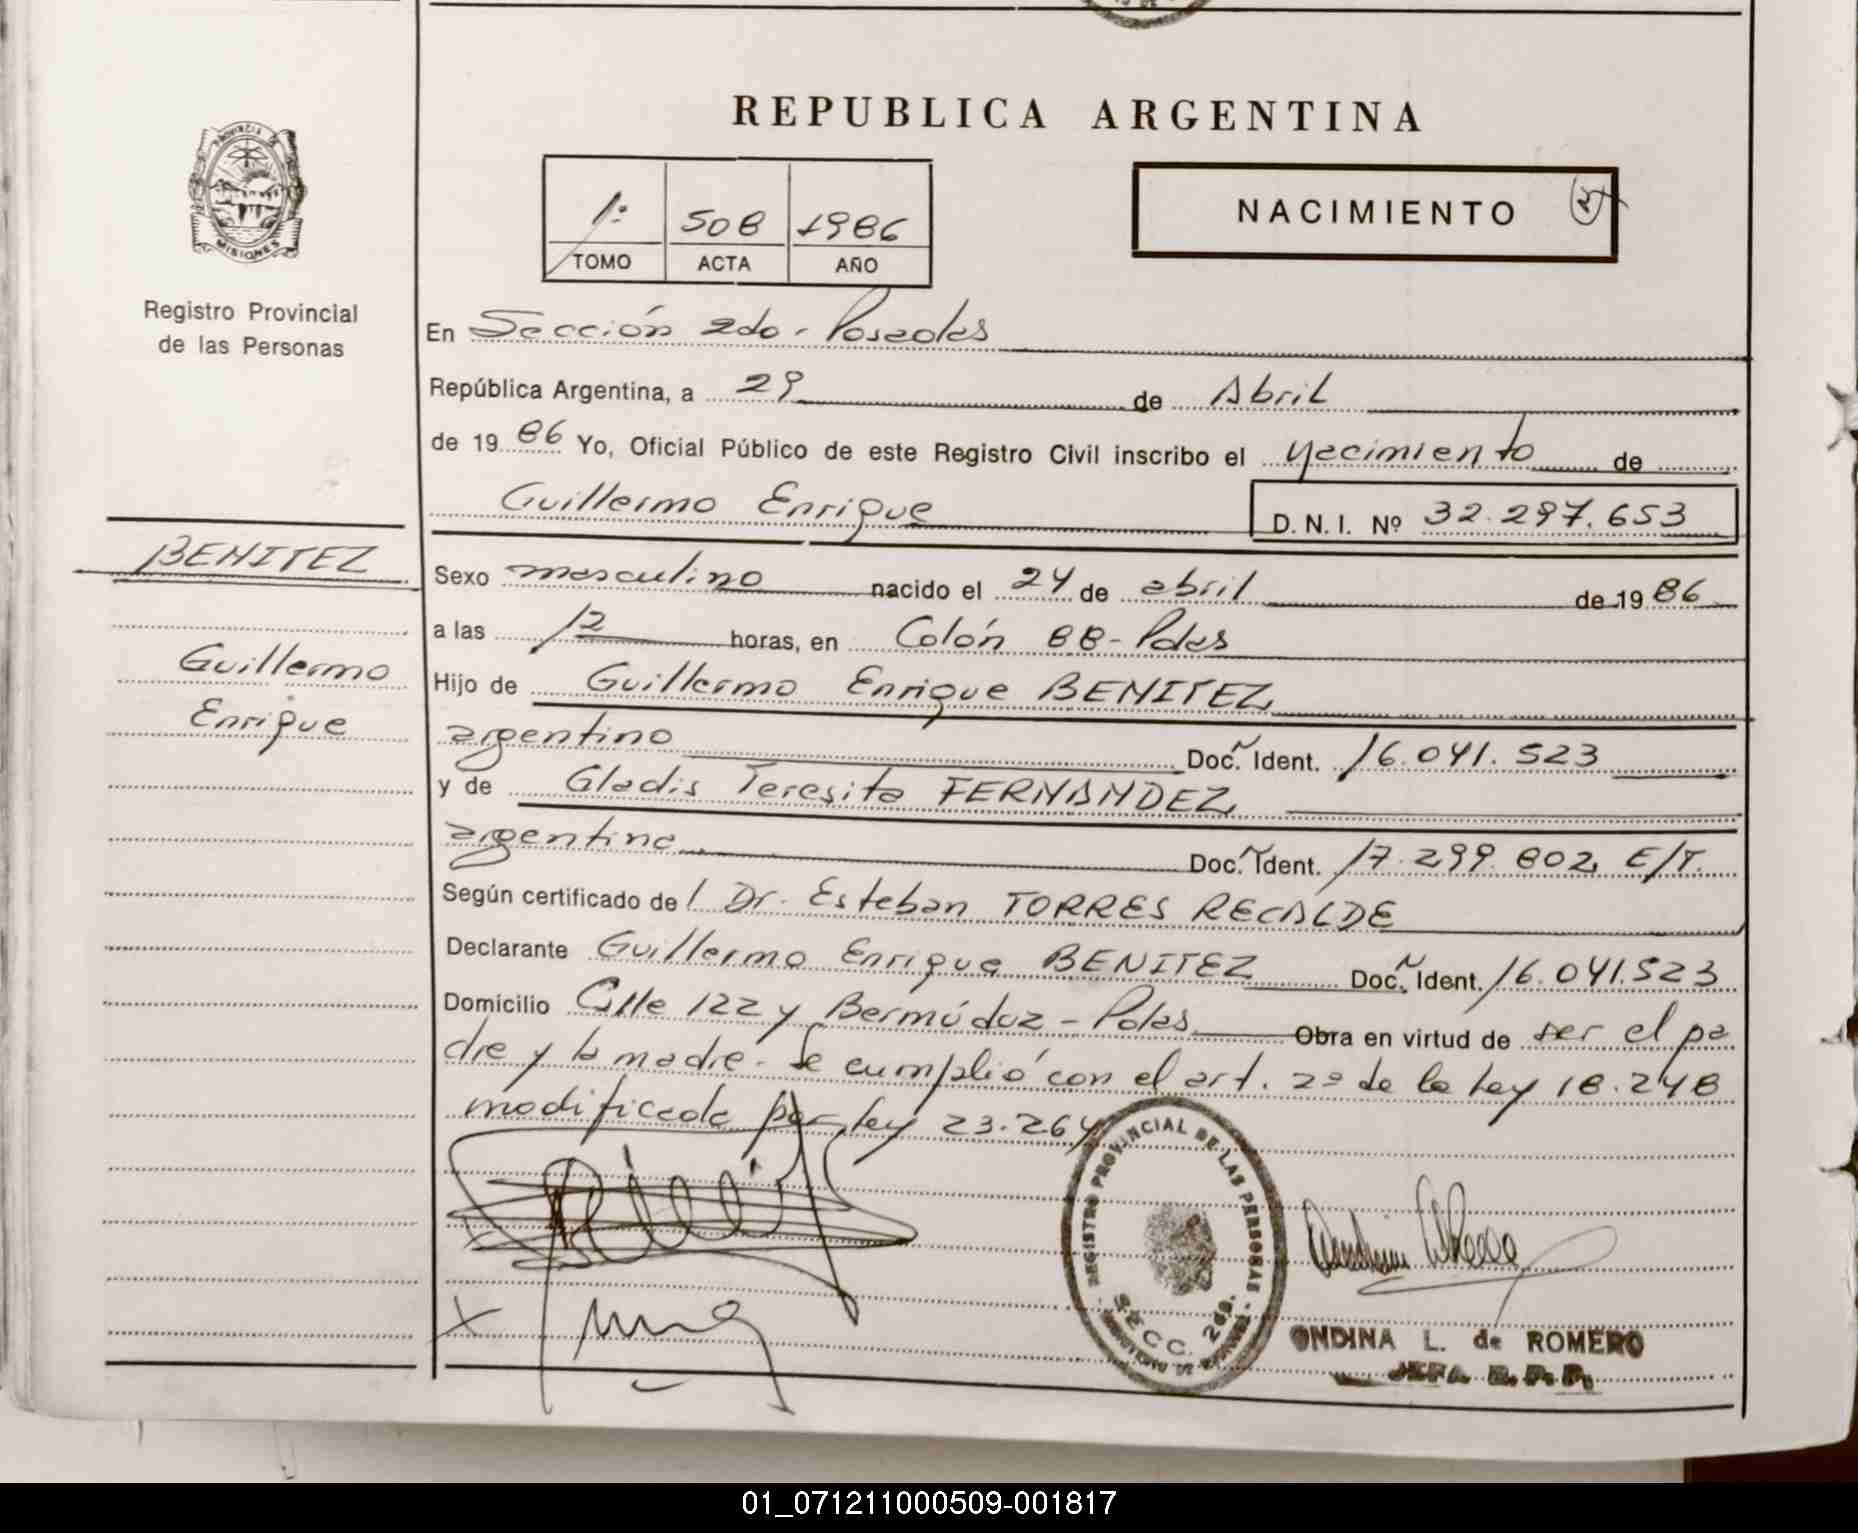 REPUBLICA ARGENTINA
PROVINCIA DE
MISIONES
Registro Provincial
de las Personas
1º 508 1986
TOMO ACTA AÑO
NACIMIENTO
En Sección 2da - Posadas
República Argentina, a 29 de Abril
de 1986 Yo, Oficial Público de este Registro Civil inscribo el nacimiento de
Guillermo Enrique D. N. I. Nº 32.297.653
BENITEZ
Guillermo
Enrique
Sexo masculino nacido el 24 de abril de 1986
a las 12 horas, en Colón 88 - Pdas
Hijo de Guillermo Enrique BENITEZ
argentino Doc. Ident. 16.041.523
y de Gladis Teresita FERNANDEZ
argentina Doc. Ident. 17.299.802 E/T.
Según certificado del Dr. Esteban TORRES RECALDE
Declarante Guillermo Enrique BENITEZ Doc. Ident. 16.041.523
Domicilio Calle 122 y Bermúdez - Pdas Obra en virtud de ser el pa
dre y la madre. Se cumplió con el art. 2º de la ley 18.248
modificada por ley 23.264
REGISTRO PROVINCIAL DE LAS PERSONAS
SECC. 2da.
ONDINA L. de ROMERO
JEFA R.P.P.
01_071211000509-001817